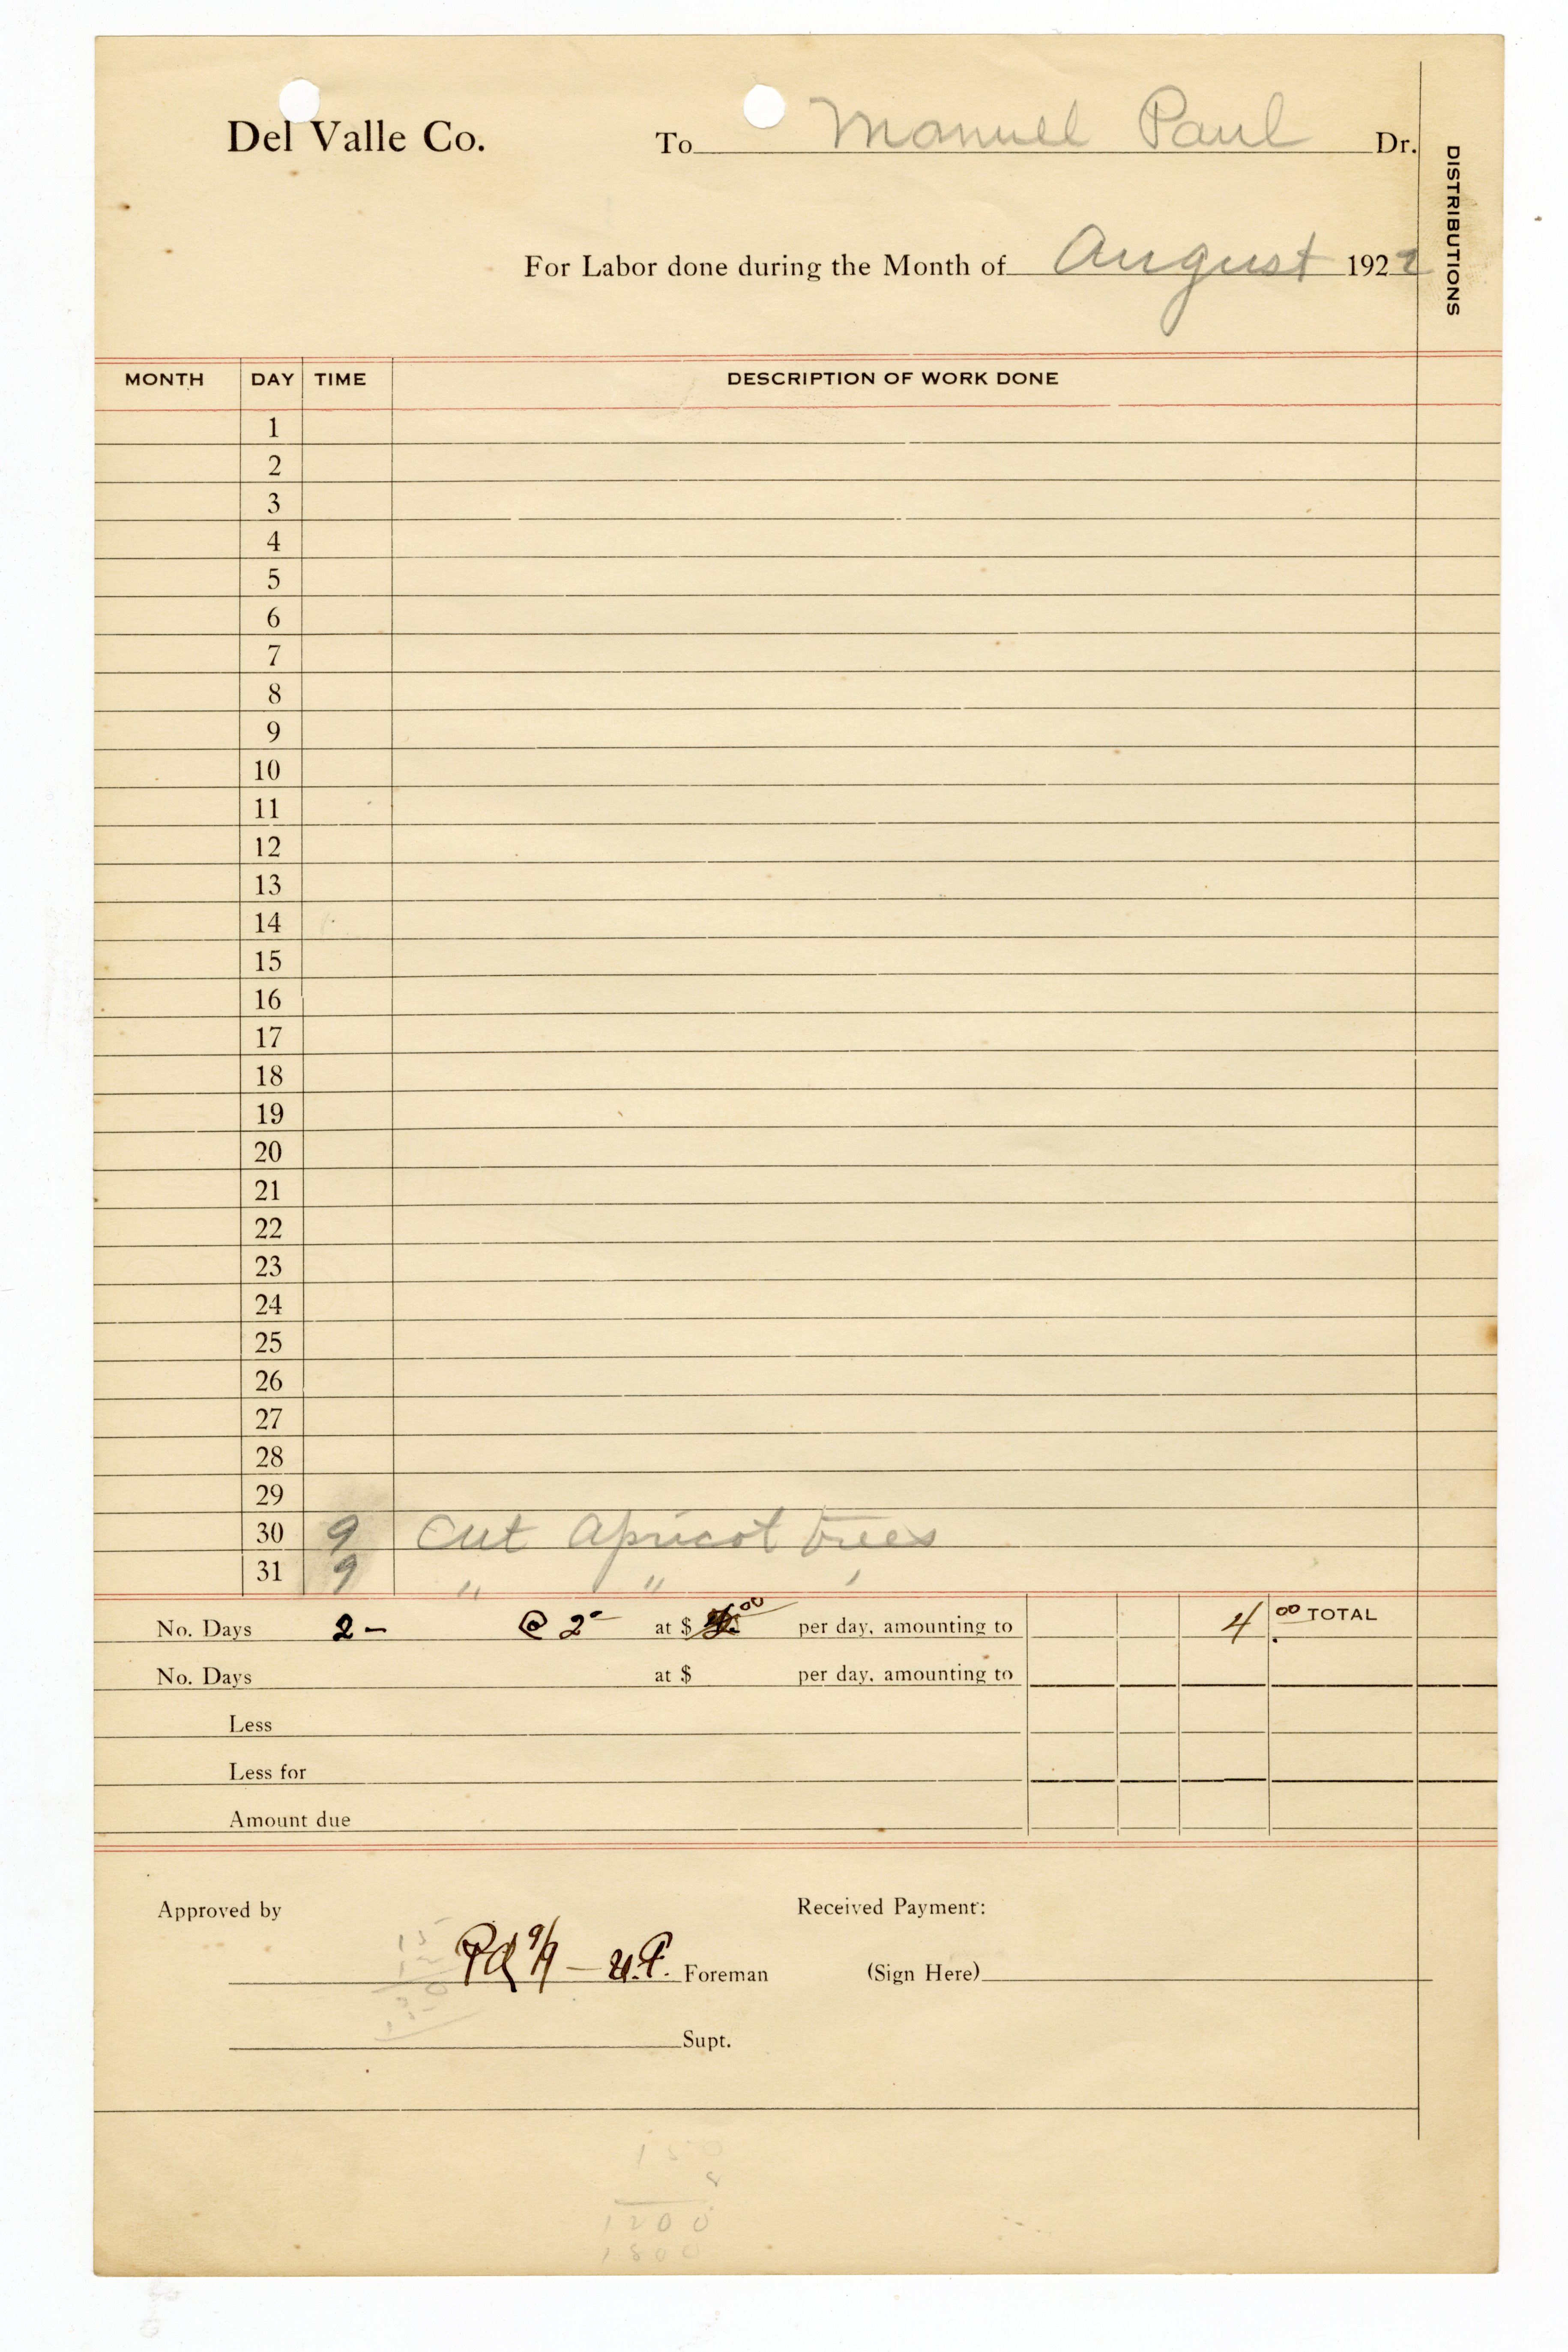 Del Valle Co. To Manuel Paul Dr.
DISTRIBUTIONS
For Labor done during the Month of August 1922
MONTH DAY TIME DESCRIPTION OF WORK DONE
1
2
3
4
5
6
7
8
9
10
11
12
13
14
15
16
17
18
19
20
21
22
23
24
25
26
27
28
29
30 9 Cut Apricot trees
31 9 " " "
No. Days 2 - @ 2- at $ per day, amounting to 4.00 TOTAL
No. Days at $ per day, amounting to
Less
Less for
Amount due
Approved by Received Payment:
Pd 9/9 - U.F. Foreman (Sign Here)
Supt.
150
8
1200
1800